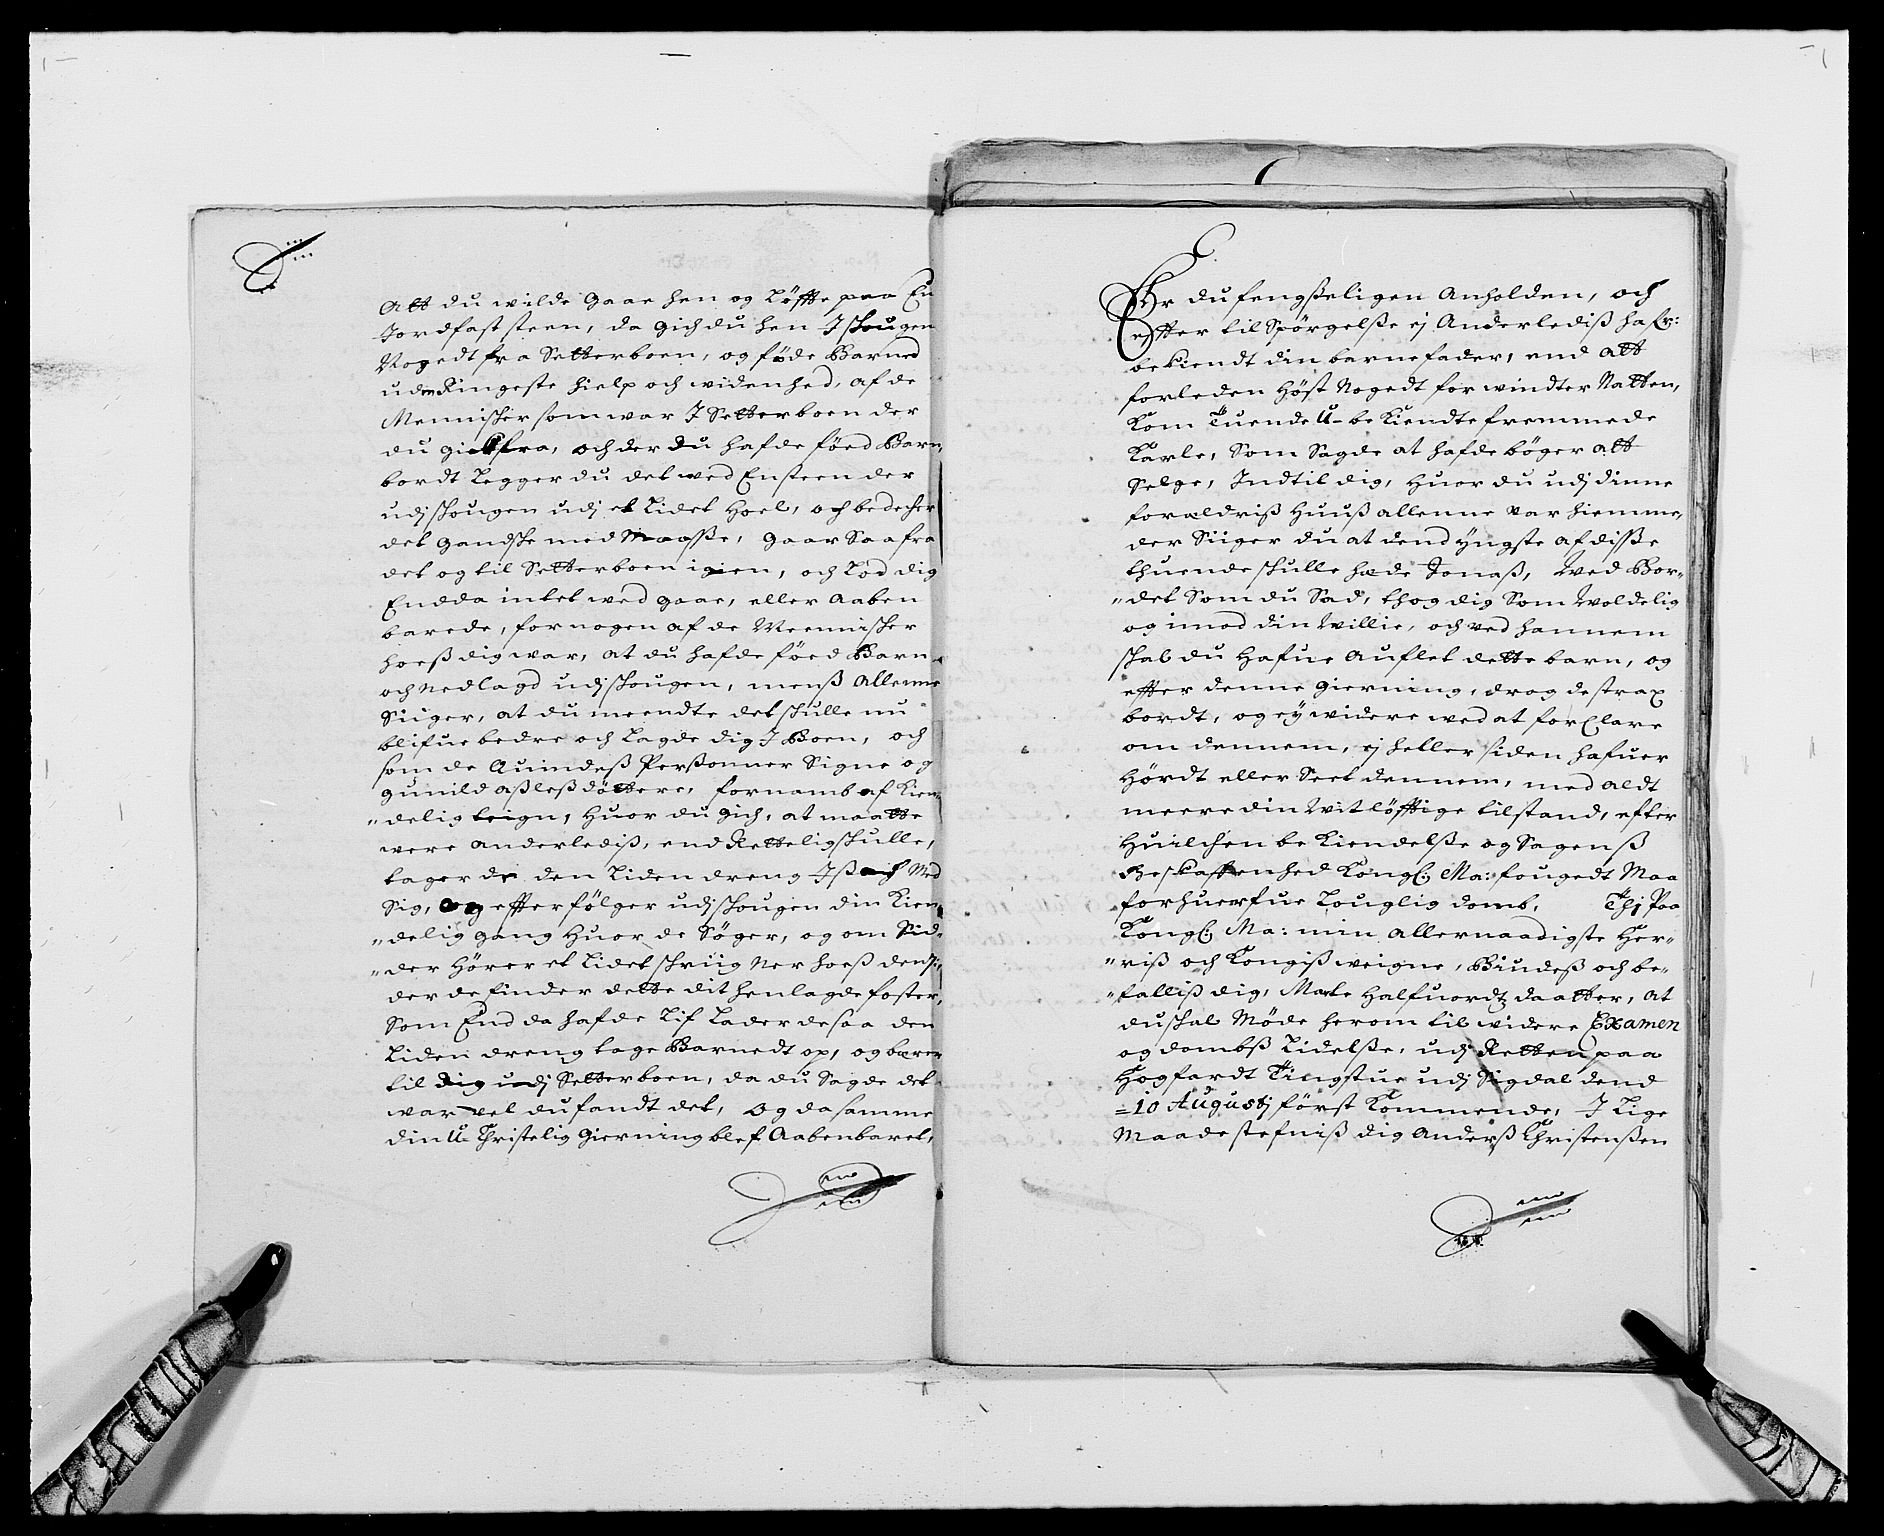 Att du wilde gaae hen og Løffte paa En
Jordfast steen, da gich du hen J schougen
Nogedt fra Setterboen, og føde Barned
uden Ringeste hielp och widenhed, af de
Mennischer som war J Setterboen der
du gick fra, och der du hafde føed Barn,
bordt Legger du det wed En steen der
udj schougen udj et Lidet Hoel, och bedecher
det gandsche med Maasse, gaar Saa fra
det og til Setterboen igien, och Lod dig
Endda intet wed gaae, eller Aaben
barede, for nogen af de Meennischer
hoess dig war, at du hafde føed Barn
och Nedlagd udj schougen, menß Allenne
Siiger, at du meendte det schulle nu
blifue bedre och Lagde dig J Boen, och
som de Quindeß Perßonner Signe og
gunild aßleßdøttere, fornamb af Kien-
"delig teign, Huor du gich, at maatte
were anderlediß, end Retteligschulle,
tager de den Liden dreng Jsach Med
Sig, og effterfølger udj schougen din Kien
"delig gang Huor de Søger, og om Sid-
"der Hører et Lidet schriig Ner hoeß den
der de finder dette dit henlagde foster,
Som End da hafde Lif Lader de saa den
Liden dreng tage Barnedt op, og bærer
til dig udj Setterboen, da du Sagde det
war vel du fandt det, og da samme
din U-Christelig gierning blef Aabenbaret,
Er du fengßeligen Anholden, och
effter til Spørgelße ej Anderlediß hafr:
bekiendt din barnefader, end att
forleden Høst Nogedt for windter Natten,
Kom Tuende U-bekiendte fremmede
Karle, Som Sagde at hafde bøger att
Selge, Indtil dig, Huor du udj dinne
forældriß Huuß allenne var hiemme,
der Siiger du at dend yngste af disse
thuende schulle hede Jonaß, Wed Bor-
"det Som du Sad, thog dig Som Woldelig
og imod din Willie, och ved hannem
schal du Hafue Auflet dette barn, og
effter denne gierning, drog de strax
bordt, og ey widere wed at forClare
om dennem, ej heller siden hafuer
Hørdt eller Seet dennem, med aldt
meere din Witløfftige tilstand, efter
Huilchen bekiendelße og Sagenß
Beskaffenhed Kongl: Ma: fougedt Maa
forhuerfue Louglig domb, Thj Paa
Kongl: Ma: min allernaadigste Her-
"riß och Kongiß weigne, Biudeß och be-
"falliß dig, Marte Halfuordtz daatter, at
du schal Møde herom til widere Examen
og dombß Lidelße, udj Retten paa
Hogfardt Tingstue udj Sigdal dend
=10 Augustj først Kommende, J Lige
Maade stefniß dig Anderß Christenßen